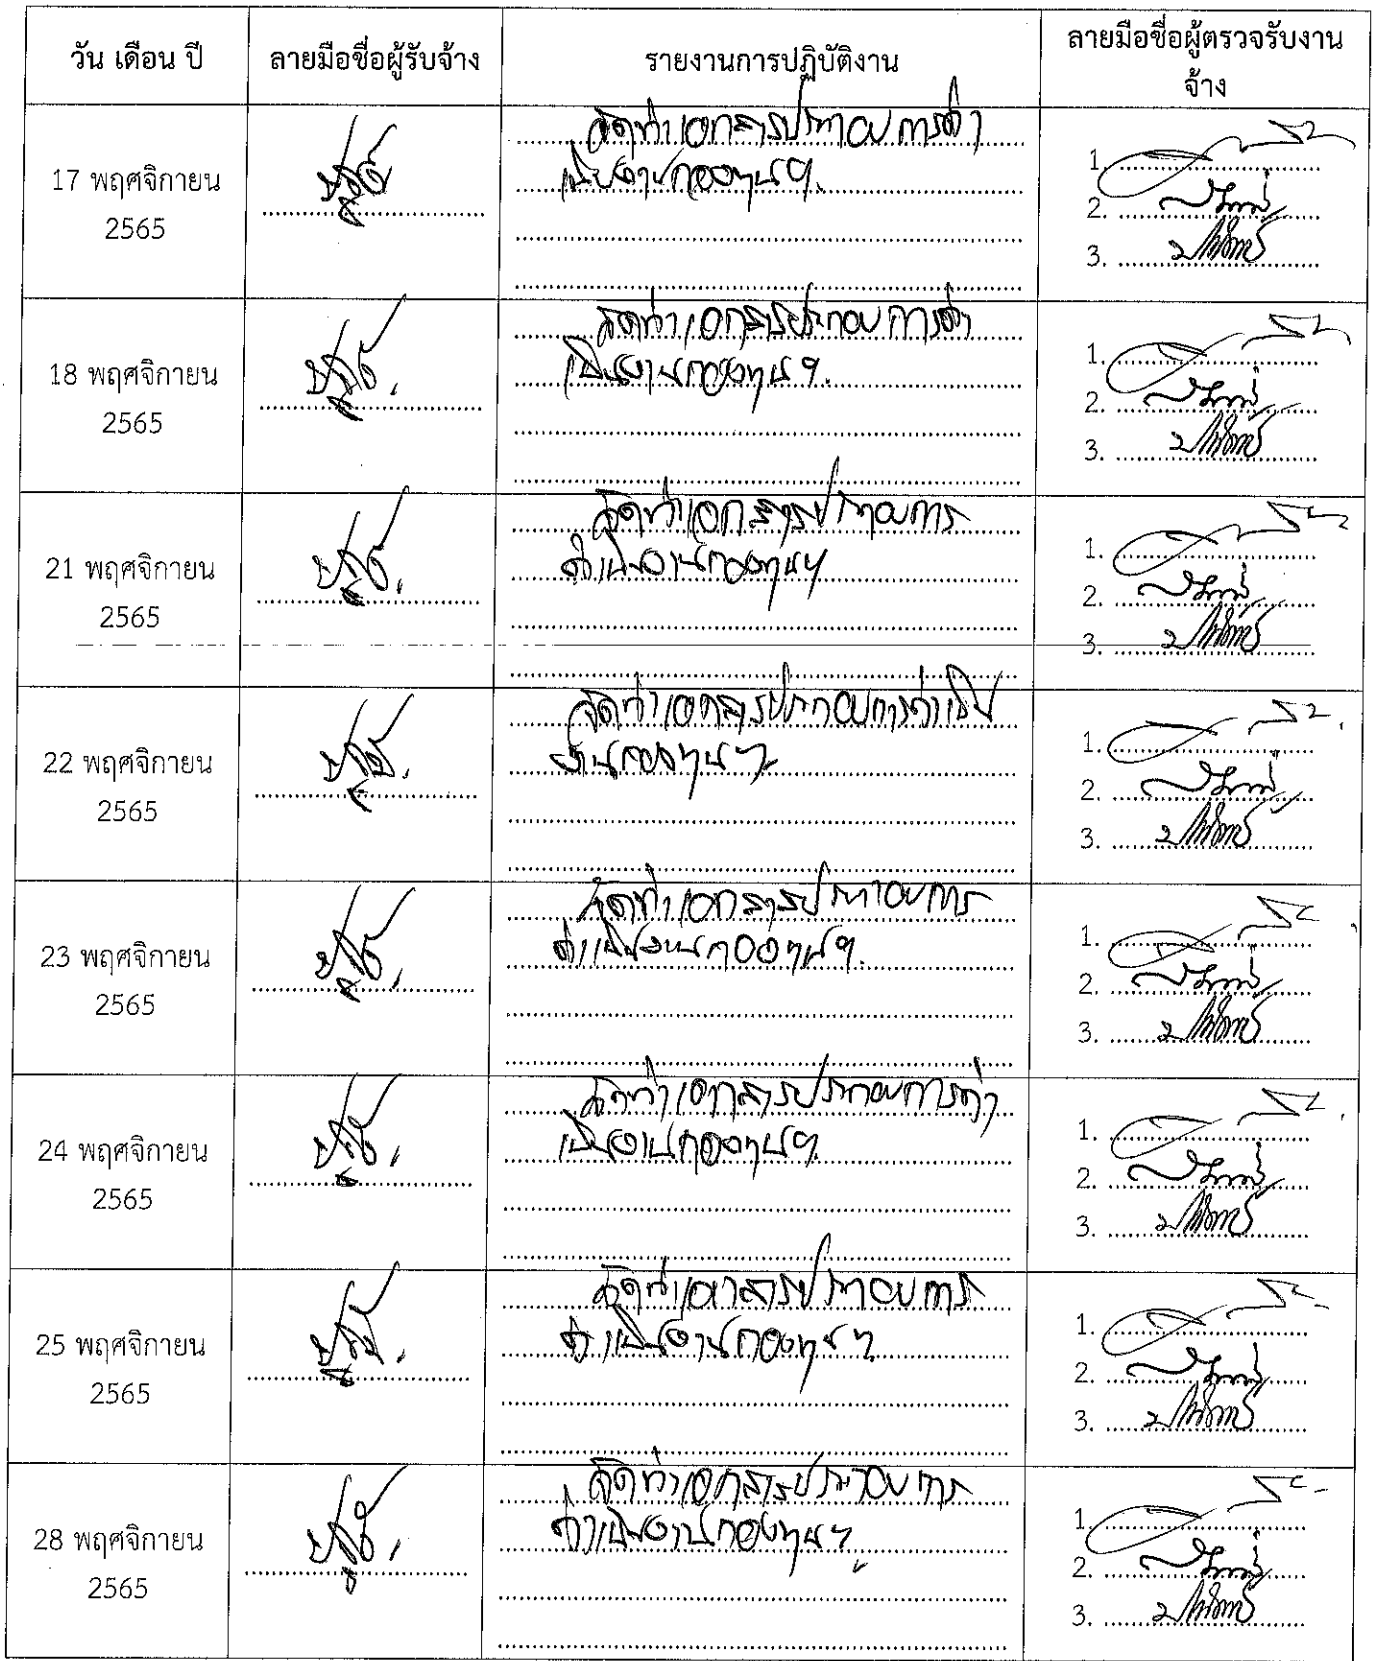 วัน เดือน ปี
ลายมือชื่อผู้รับจ้าง
รายงานการปฏิบัติงาน
ลายมือชื่อผู้ตรวจรับงาน
จ้าง
17 พฤศจิกายน
2565
จัดทำเอกสารประกอบการดำ
เนินงานกองทุนฯ
1.
2.
3.
18 พฤศจิกายน
2565
จัดทำเอกสารประกอบการดำ
เนินงานกองทุนฯ
1.
2.
3.
21 พฤศจิกายน
2565
จัดทำเอกสารประกอบการ
ดำเนินงานกองทุนฯ
1.
2.
3.
22 พฤศจิกายน
2565
จัดทำเอกสารประกอบการดำเนิน
งานกองทุนฯ
1.
2.
3.
23 พฤศจิกายน
2565
จัดทำเอกสารประกอบการ
ดำเนินงานกองทุนฯ
1.
2.
3.
24 พฤศจิกายน
2565
จัดทำเอกสารประกอบการดำ
เนินงานกองทุนฯ
1.
2.
3.
25 พฤศจิกายน
2565
จัดทำเอกสารประกอบการ
ดำเนินงานกองทุนฯ
1.
2.
3.
28 พฤศจิกายน
2565
จัดทำเอกสารประกอบการ
ดำเนินงานกองทุนฯ
1.
2.
3.